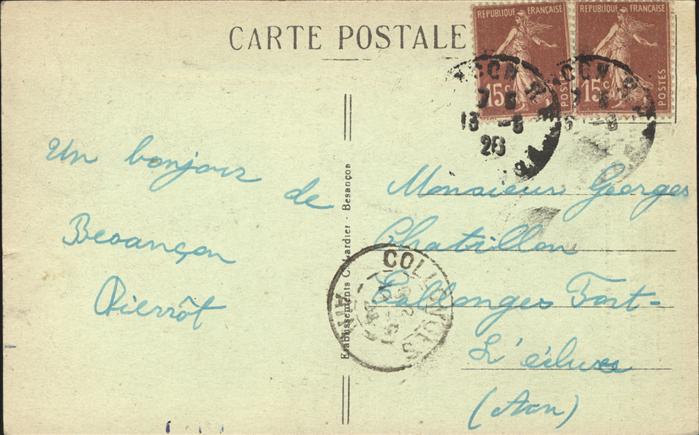 CARTE POSTALE
REPUBLIQUE FRANÇAISE
15c
POSTES
REPUBLIQUE FRANÇAISE
15c
POSTES
Un bonjour de
Besançon
Pierrôt
Etablissements C. Lardier - Besançon
Monsieur Georges
Chatillon
Collonges Fort-
L'écluse
(Ain)
COLLONGES
AIN